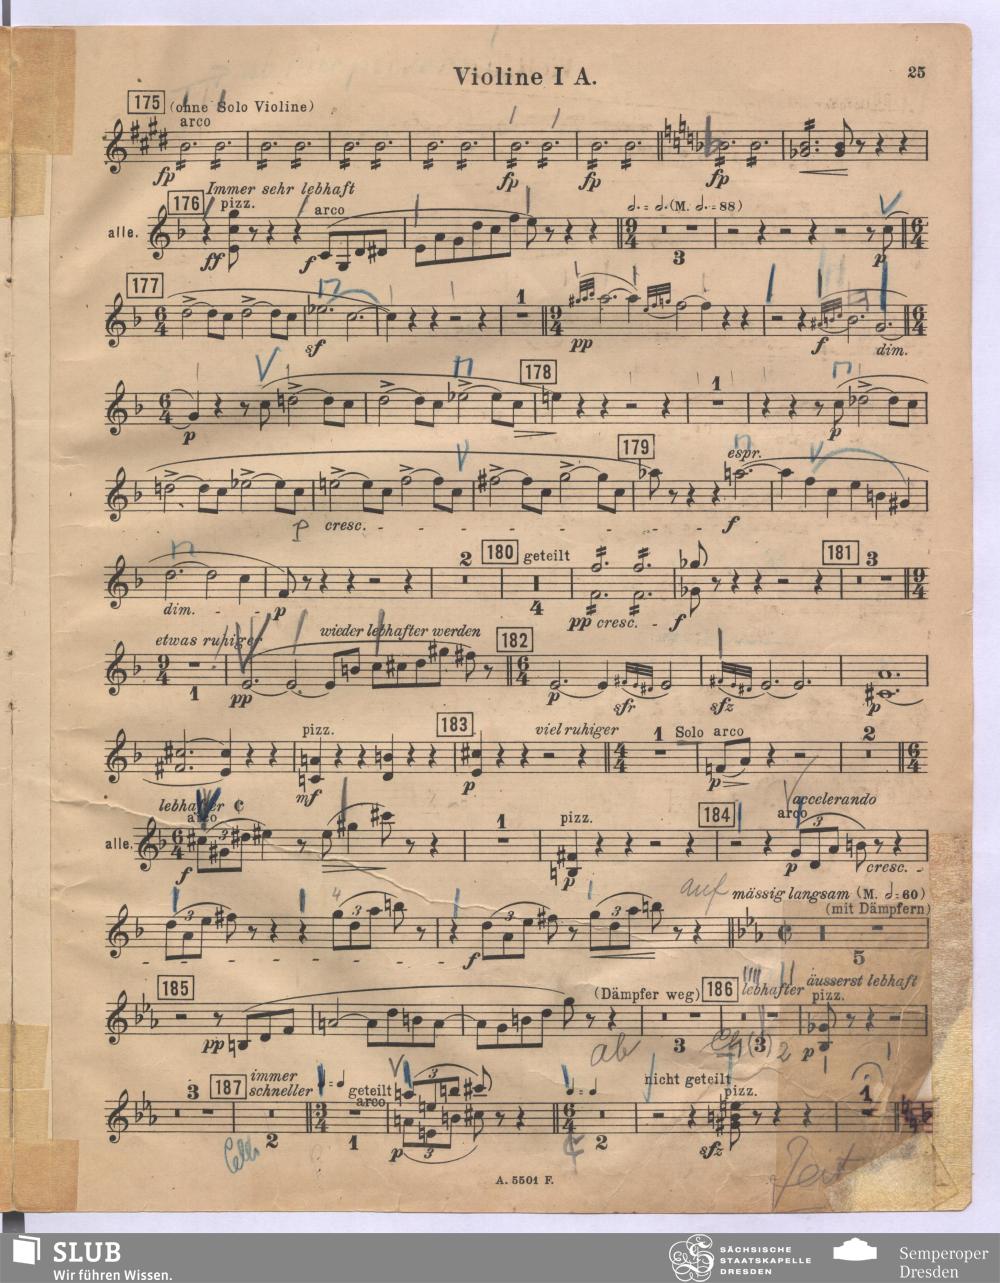 Violine I A.
25
175 (ohne Solo Violine)
arco
fp fp fp fp
Immer sehr lebhaft
176 pizz. arco (M. = 88)
alle.
ff f 3 p
177
1
sf pp f dim.
178
1
p p
179
espr.
p cresc. f
2 180 geteilt 181 3
dim. p 4 pp cresc. f
etwas ruhiger wieder lebhafter werden 182
1 pp p sfr sfz p
pizz. 183 viel ruhiger 1 Solo arco 2
mf p p
lebhafter accelerando
arco 3 1 pizz. 184 arco 3
alle.
f p p cresc.
auf mässig langsam (M. = 60)
(mit Dämpfern)
3 4 3 3 3
f 5
185 (Dämpfer weg) 186 lebhafter äusserst lebhaft
pizz.
pp ab 3 3 2 p
3 187 immer schneller geteilt arco 3 nicht geteilt pizz. 1
Celli 2 1 p 3 2 sfz
A. 5501 F.
SLUB
Wir führen Wissen.
SÄCHSISCHE
STAATSKAPELLE
DRESDEN
Semperoper
Dresden